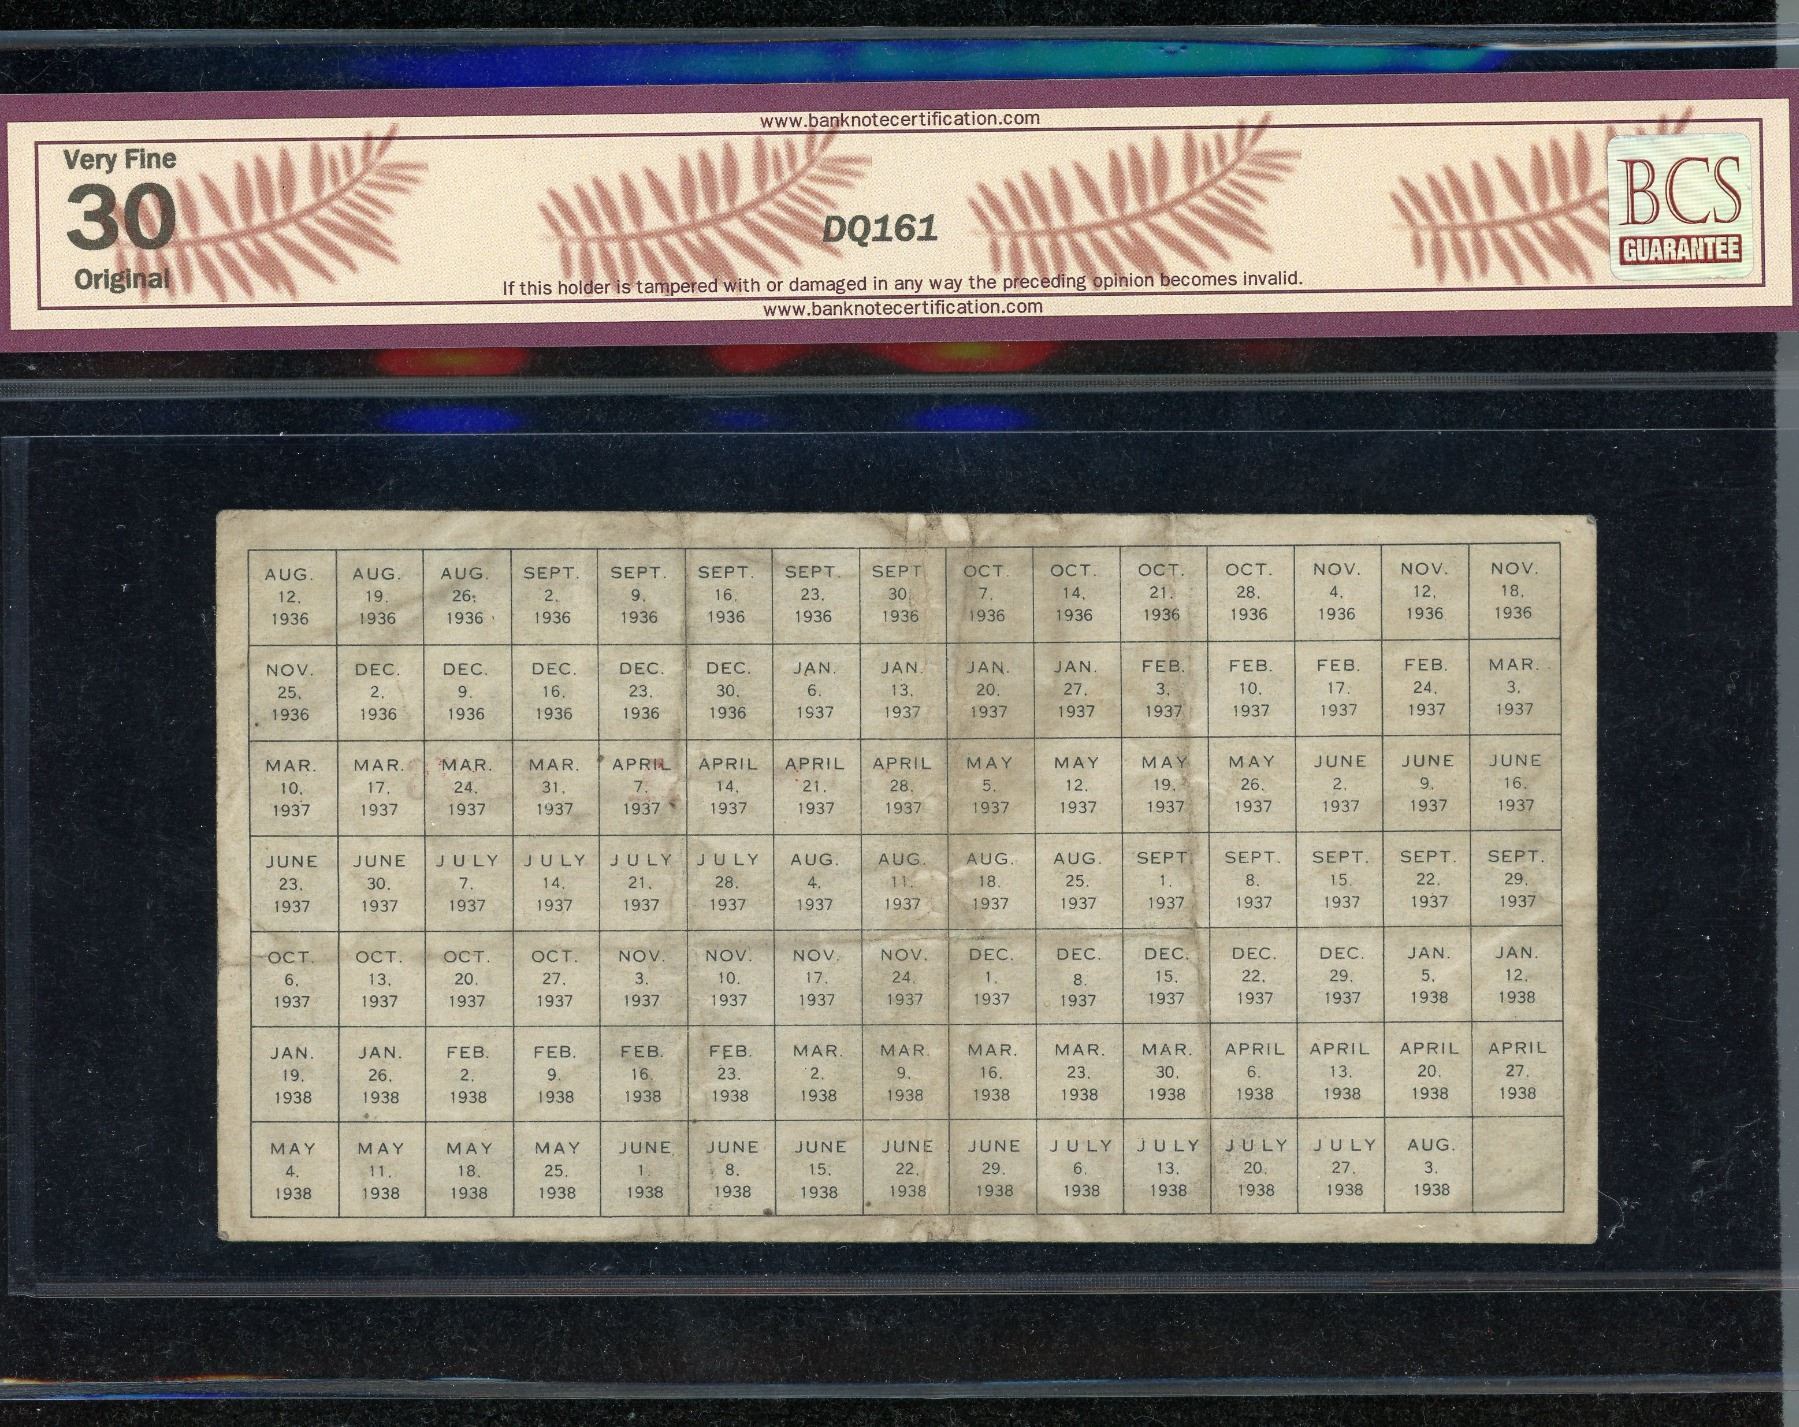 www.banknotecertification.com
Very Fine
30
Original
DQ161
BCS
GUARANTEE
If this holder is tampered with or damaged in any way the preceding opinion becomes invalid.
www.banknotecertification.com
AUG. AUG. AUG. SEPT. SEPT. SEPT. SEPT. SEPT. OCT. OCT. OCT. OCT. NOV. NOV. NOV.
12, 19, 26, 2, 9, 16, 23, 30, 7, 14, 21, 28, 4, 12, 18,
1936 1936 1936 1936 1936 1936 1936 1936 1936 1936 1936 1936 1936 1936 1936
NOV. DEC. DEC. DEC. DEC. DEC. JAN. JAN. JAN. JAN. FEB. FEB. FEB. FEB. MAR.
25, 2, 9, 16, 23, 30, 6, 13, 20, 27, 3, 10, 17, 24, 3,
1936 1936 1936 1936 1936 1936 1937 1937 1937 1937 1937 1937 1937 1937 1937
MAR. MAR. MAR. MAR. APRIL APRIL APRIL APRIL MAY MAY MAY MAY JUNE JUNE JUNE
10, 17, 24, 31, 7, 14, 21, 28, 5, 12, 19, 26, 2, 9, 16,
1937 1937 1937 1937 1937 1937 1937 1937 1937 1937 1937 1937 1937 1937 1937
JUNE JUNE JULY JULY JULY JULY AUG. AUG. AUG. AUG. SEPT. SEPT. SEPT. SEPT. SEPT.
23, 30, 7, 14, 21, 28, 4, 11, 18, 25, 1, 8, 15, 22, 29,
1937 1937 1937 1937 1937 1937 1937 1937 1937 1937 1937 1937 1937 1937 1937
OCT. OCT. OCT. OCT. NOV. NOV. NOV. NOV. DEC. DEC. DEC. DEC. DEC. JAN. JAN.
6, 13, 20, 27, 3, 10, 17, 24, 1, 8, 15, 22, 29, 5, 12,
1937 1937 1937 1937 1937 1937 1937 1937 1937 1937 1937 1937 1937 1938 1938
JAN. JAN. FEB. FEB. FEB. FEB. MAR. MAR. MAR. MAR. MAR. APRIL APRIL APRIL APRIL
19, 26, 2, 9, 16, 23, 2, 9, 16, 23, 30, 6, 13, 20, 27,
1938 1938 1938 1938 1938 1938 1938 1938 1938 1938 1938 1938 1938 1938 1938
MAY MAY MAY MAY JUNE JUNE JUNE JUNE JUNE JULY JULY JULY JULY AUG.
4, 11, 18, 25, 1, 8, 15, 22, 29, 6, 13, 20, 27, 3,
1938 1938 1938 1938 1938 1938 1938 1938 1938 1938 1938 1938 1938 1938